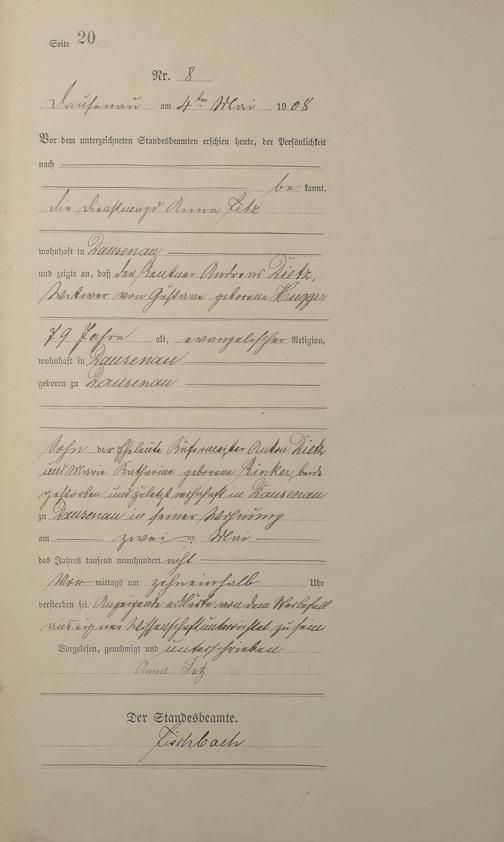 Seite 20
Nr. 8
Dausenau am 4ten Mai 1908
Vor dem unterzeichneten Standesbeamten erschien heute, der Persönlichkeit
nach
be kannt,
die Dienstmagd Anna
wohnhaft in Dausenau
und zeigte an, daß der Rentner Andreas Dietz,
Witwer von Gustave geborene Hugger
79 Jahre alt, evangelischer Religion,
wohnhaft in Dausenau
geboren zu Dausenau
Sohn der Eheleute Küfermeister Anton Dietz
und Marie Katharine geborene Rinker, beide
gestorben und zuletzt wohnhaft in Dausenau
zu Dausenau in seiner Wohnung
am zwei ten Mai
des Jahres tausend neunhundert acht
Vor mittags um zehneinhalb Uhr
verstorben sei. Anzeigende erklärte, von dem Sterbefall
aus eigner Wissenschaft unterrichtet zu sein
Vorgelesen, genehmigt und unterschrieben
Anna
Der Standesbeamte.
Fischbach